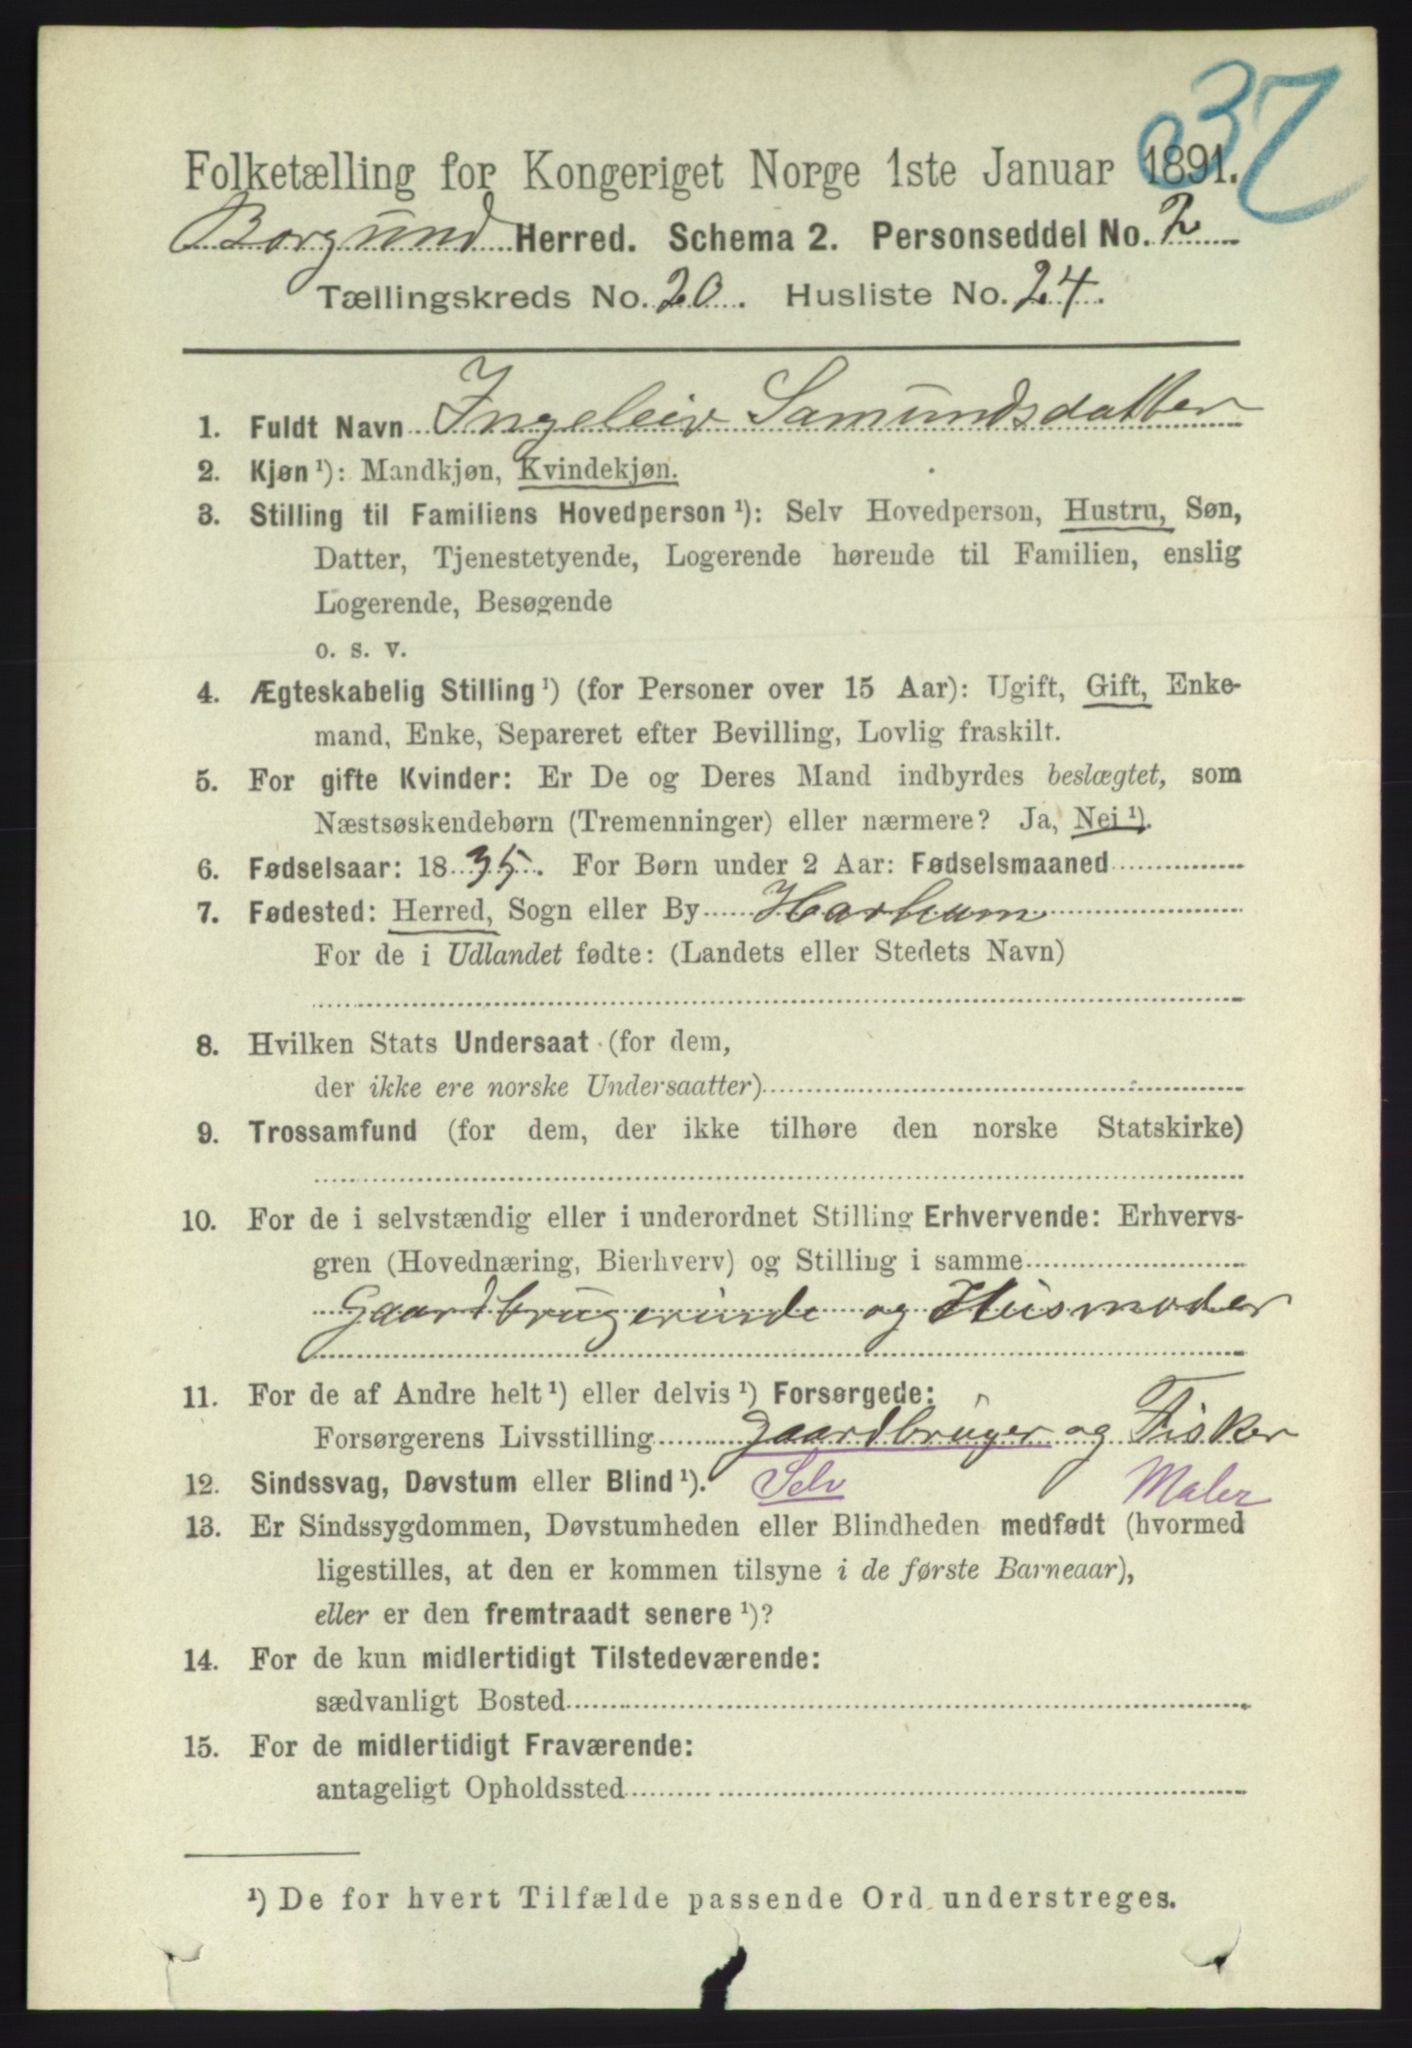 037
Folketælling for Kongeriget Norge 1ste Januar 1891.
Borgund Herred. Schema 2. Personseddel No. 2
Tællingskreds No. 20. Husliste No. 24.
1. Fuldt Navn Ingeleiv Samundsdatter
2. Kjøn ¹): Mandkjøn, Kvindekjøn.
3. Stilling til Familiens Hovedperson ¹): Selv Hovedperson, Hustru, Søn,
Datter, Tjenestetyende, Logerende hørende til Familien, enslig
Logerende, Besøgende
o. s. v.
4. Ægteskabelig Stilling ¹) (for Personer over 15 Aar): Ugift, Gift, Enke-
mand, Enke, Separeret efter Bevilling, Lovlig fraskilt.
5. For gifte Kvinder: Er De og Deres Mand indbyrdes beslægtet, som
Næstsøskendebørn (Tremenninger) eller nærmere? Ja, Nei ¹).
6. Fødselsaar: 1835. For Børn under 2 Aar: Fødselsmaaned
7. Fødested: Herred, Sogn eller By Harham
For de i Udlandet fødte: (Landets eller Stedets Navn)
8. Hvilken Stats Undersaat (for dem,
der ikke ere norske Undersaatter)
9. Trossamfund (for dem, der ikke tilhøre den norske Statskirke)
10. For de i selvstændig eller i underordnet Stilling Erhvervende: Erhvervs-
gren (Hovednæring, Bierhverv) og Stilling i samme
Gaardbrugerinde og Husmoder
11. For de af Andre helt ¹) eller delvis ¹) Forsørgede:
Forsørgerens Livsstilling gaardbruger og Fisker
12. Sindssvag, Døvstum eller Blind ¹). Selv Maler
13. Er Sindssygdommen, Døvstumheden eller Blindheden medfødt (hvormed
ligestilles, at den er kommen tilsyne i de første Barneaar),
eller er den fremtraadt senere ¹)?
14. For de kun midlertidigt Tilstedeværende:
sædvanligt Bosted
15. For de midlertidigt Fraværende:
antageligt Opholdssted
¹) De for hvert Tilfælde passende Ord understreges.